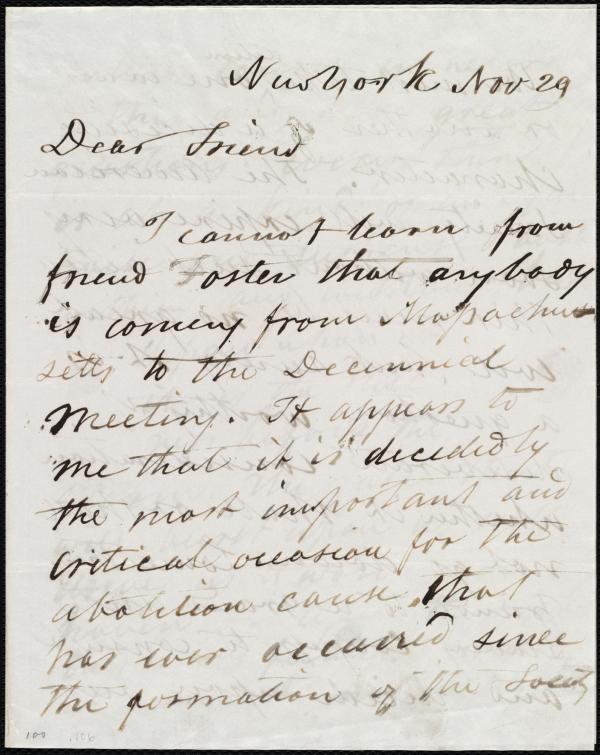 New York Nov 29
Dear Friend
I cannot learn from
friend Foster that anybody
is coming from Massachu
setts to the Decennial
Meeting. It appears to
me that it is decidedly
the most important and
critical occasion for the
abolition cause, that
has ever occurred since
the formation of the Society
100 .106